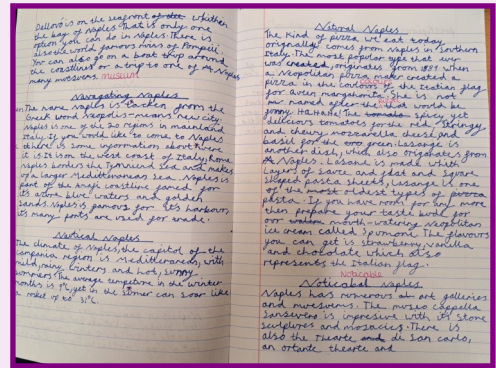 Dellovo is on the seafront of the whithen
the bay of Naples. That is only one
option you can do in Naples. There is
also the world famous ruins of Pompeii.
You can also go on a boat trip around
the coastlines or a trip to one of Naples
many museums. museum
Navigating Naples
The name Naples is tacken from the
Greek word Neopolis - means new city.
Naples is one of the 20 regions in mainland
Italy. if you would like to come to Naples
there is some information about where
it is. It is on the west coast of Italy, home
naples borders the Tyrrhenian Sea and makes
up a larger Mediterranean sea. Naples is
part of the Amalfi coastline famed for
its azure blue waters and golden
sands. Naples is famous for its harbour,
its many ports are used for trade.
Nautical Naples
The climate of Naples, the capitol of the
Campania region is Mediterranean, with
mild, rainy winters and hot, sunny
summers. The average tempeture in the winter
months is 9°c, yet in the summer can soar like
a rocket up to 31°c
Natural Naples
The kind of pizza we eat today
originally comes from Naples in Southern
Italy. The most popular that ever
was created, originates from 1889. When
a Neopolitan pizza maker created a
pizza in the colours of the Italian flag
for Queen margarita. She is not
named after the that would be
funny. HA HA HA! The spicy yet
delicious tomatoes for the red, stringy
and chewy mozzarella cheese and
basil for the green. Lasange is
another dish, which also originates from
Naples. Lasane is made with
layers of sauce and flat and square
shaped pasta sheets, lasange is one
of the most oldest types of
pasta. If you have room for any more
then prepare your taste buds for
our mouth-watering Neoplitan
ice cream called Spumone. The flavours
you can get is strawberry, vanilla
and chocolate which also
represents the Italian flag.
Noticable
Noticabal Naples
Naples has numerous art galleries
and museums. The museo Cappella
Sansevero is impresive with its stone
sculptures and mosacics. There is
also the Thearte de San carlo,
an ortante thearte and